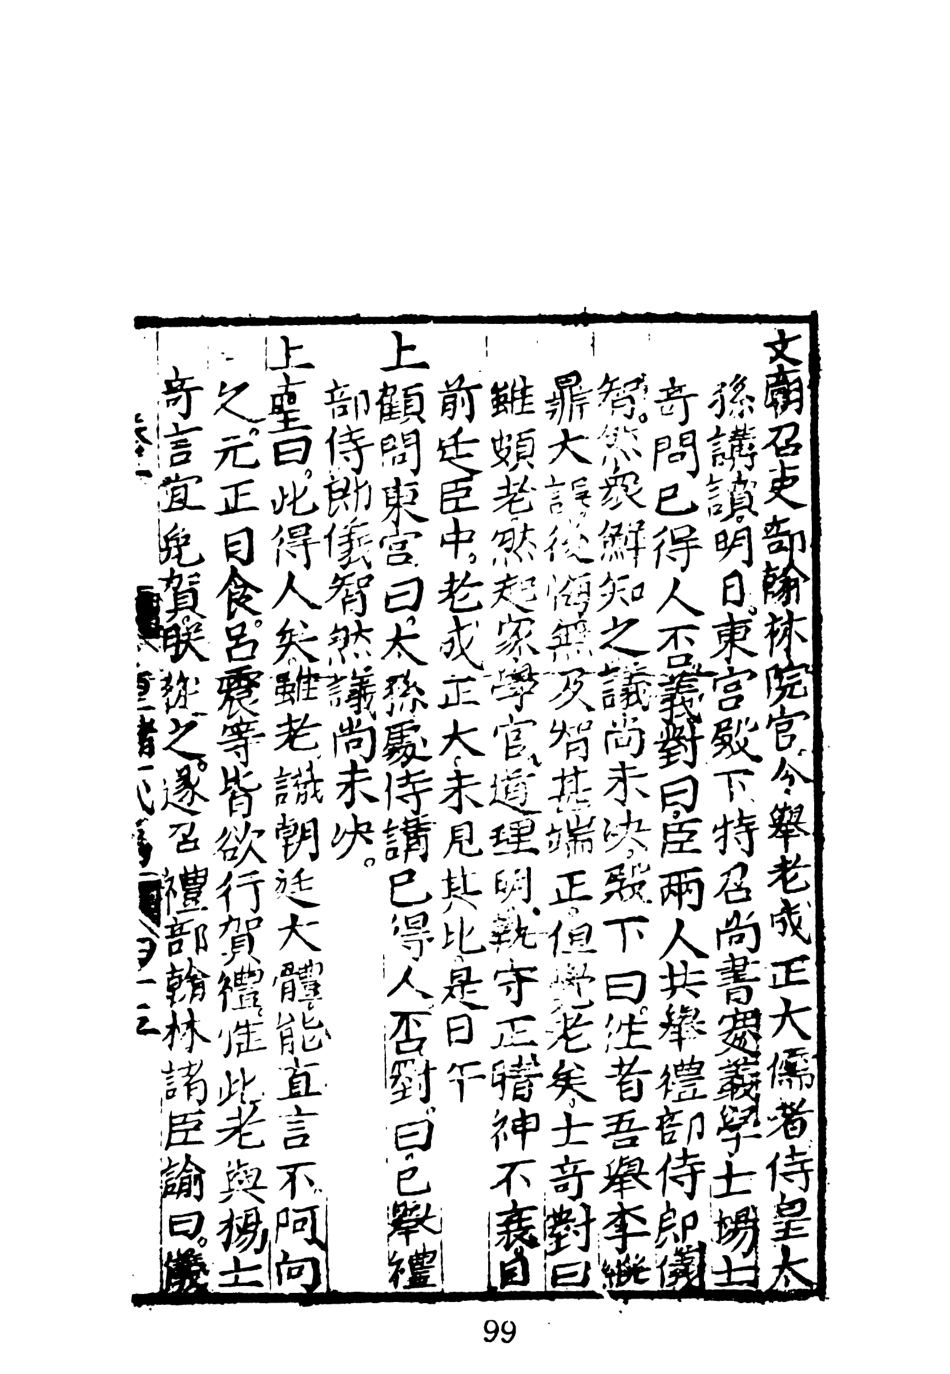 文廟召吏部翰林院官令舉老成正大儒者侍皇太
孫講讀。明日。東宮殿下特召尚書蹇義學士楊士
奇問已得人否義對曰臣兩人共舉禮部侍郎儀
智。然衆鮮知之議尚未决。殿下曰。往者吾舉李繼
鼎大誤。後悔無及智甚端正。但覺老矣。士奇對曰
雖頗老。然起家學官。道理明。執守正。精神不衰。目
前廷臣中。老成正大。未見其比。是日午
上顧問東宮曰。大孫處侍講已得人否。對曰。已舉禮
部侍郎儀智然議尚未决。
上喜曰。此得人矣。雖老識朝廷大體能直言不阿向
之。元正日食。呂震等皆欲行賀禮。惟此老與楊士
奇言宜免賀。朕從之。遂召禮部翰林諸臣諭曰。儀
四十三
99